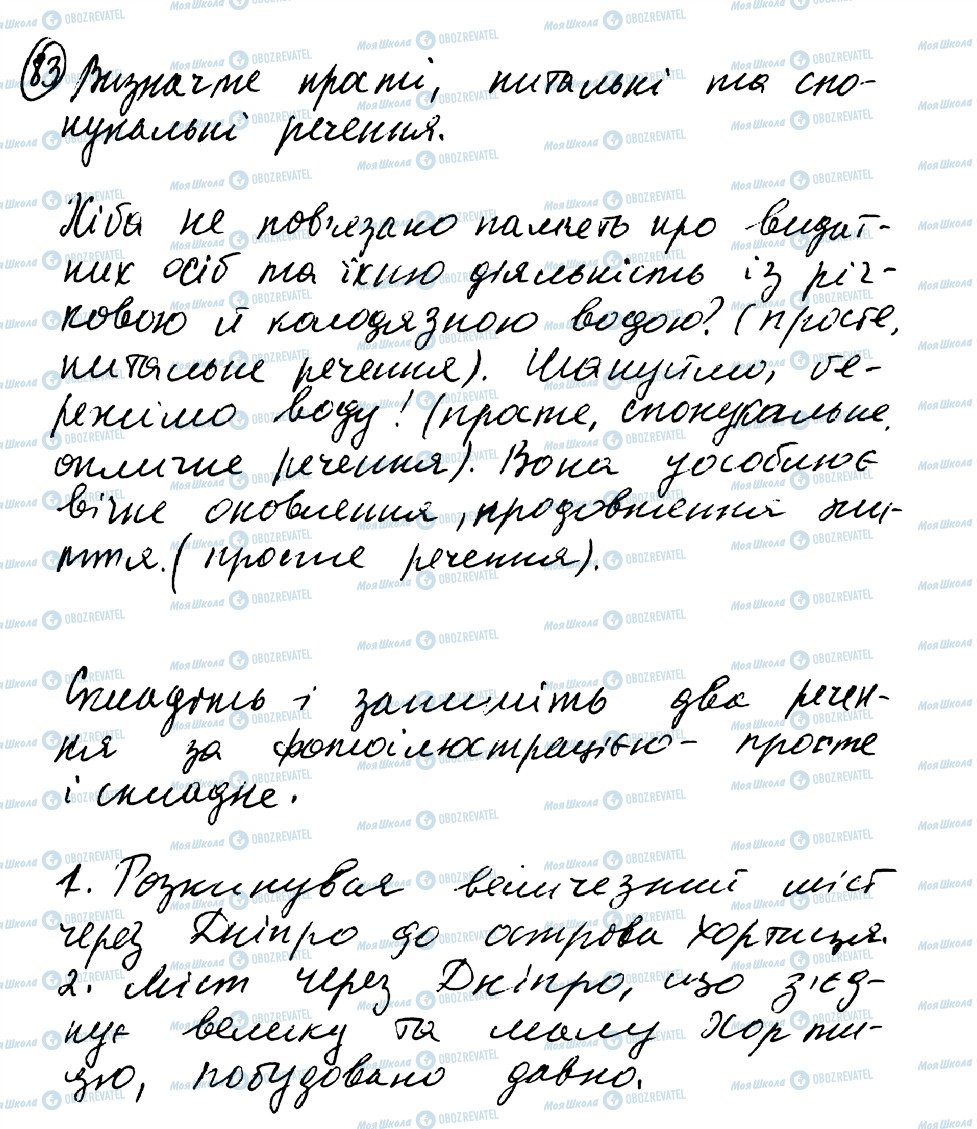 83 Визначте прості, питальні та спо-
нукальні речення.
Хіба не пов'язано память про видат-
них осіб та їхню діяльність із річ-
ковою й колодязною водою? (просте,
питальне речення). Шануймо, бе-
режімо воду! (просте, спонукальне,
окличне речення). Вона уособлює
вічне оновлення, продовження жи-
ття. (просте речення).
Складіть і запишіть два речен-
ня за фотоілюстрацією - просте
і складне.
1. Розкинувся величезний міст
через Дніпро до острова Хортиця.
2. Міст через Дніпро, що з'єд-
нує велику та малу Хорти-
цю, побудовано давно.